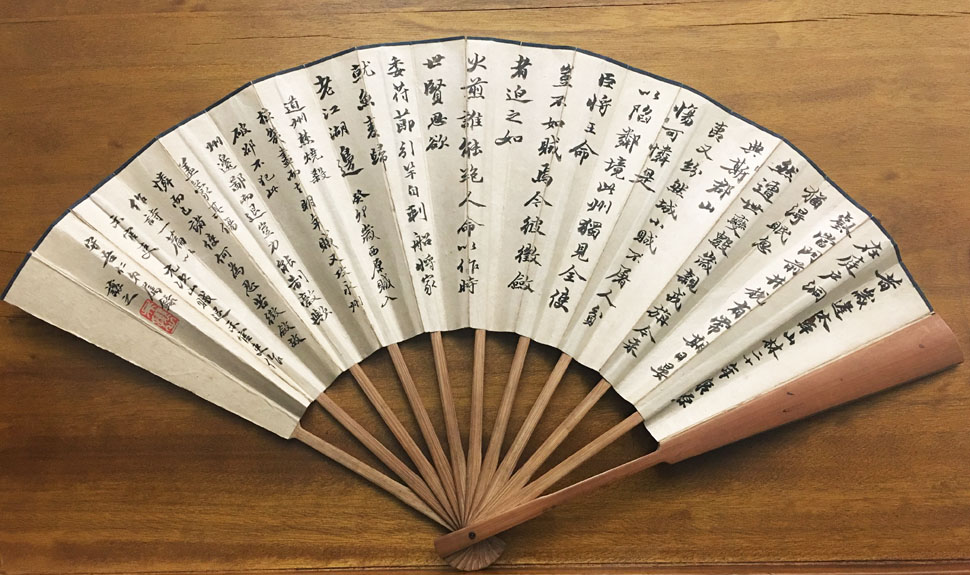 昔歲逢太平山林二十年泉源
在庭戶洞
壑當門前井稅有常期日晏
猶得眠忽
然遭世變數歲親戎旃今來
典斯郡山
夷又紛然城小賊不屠人貧
傷可憐是
以陷鄰境此州獨見全使
臣將王命
豈不如賊焉今彼徵斂
者迫之如
火煎誰能絕人命以作時
世賢思欲
委符節引竿自刺船將家
就魚麥歸
老江湖邊 癸卯歲西原賊入
道州焚燒殺
掠幾盡而去明年賊又攻永州
破邵不犯此
州邊鄙而退豈力能制敵歟
蓋蒙其傷
憐而已諸使何為忍苦徵斂故
作詩一篇以
示官吏 元次山賊退示官吏作